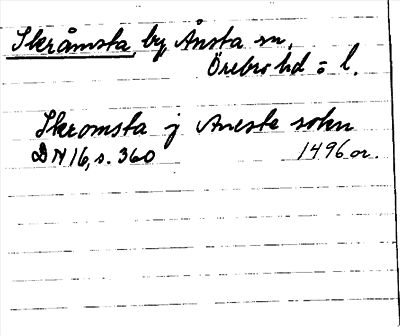 Skråmsta, by, Ånsta sn,
Örebro hd o l.
Skromsta j Aneste sokn
DN 16, s. 360 1496 or.